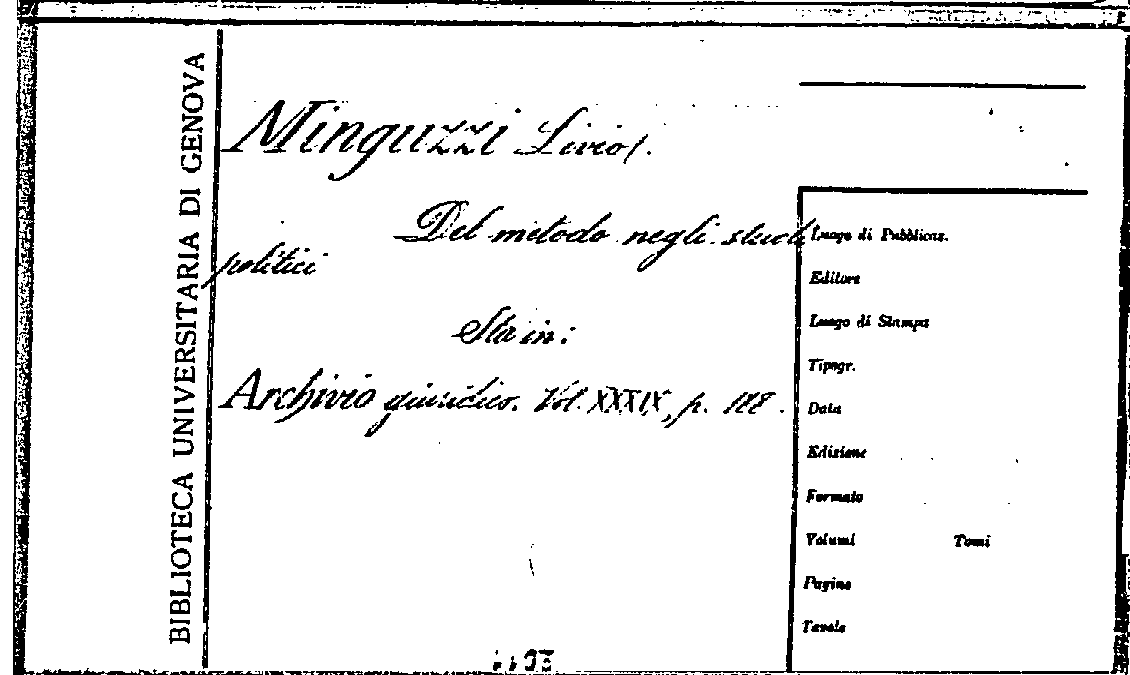 BIBLIOTECA UNIVERSITARIA DI GENOVA
Minguzzi Livio/.
Del metodo negli studi
politici
Sta in:
Archivio giuridico. Vol. XXXIX, p. 188.
Luogo di Pubblicaz.
Editore
Luogo di Stampa
Tipogr.
Data
Edizione
Formato
Volumi Tomi
Pagine
Tavole